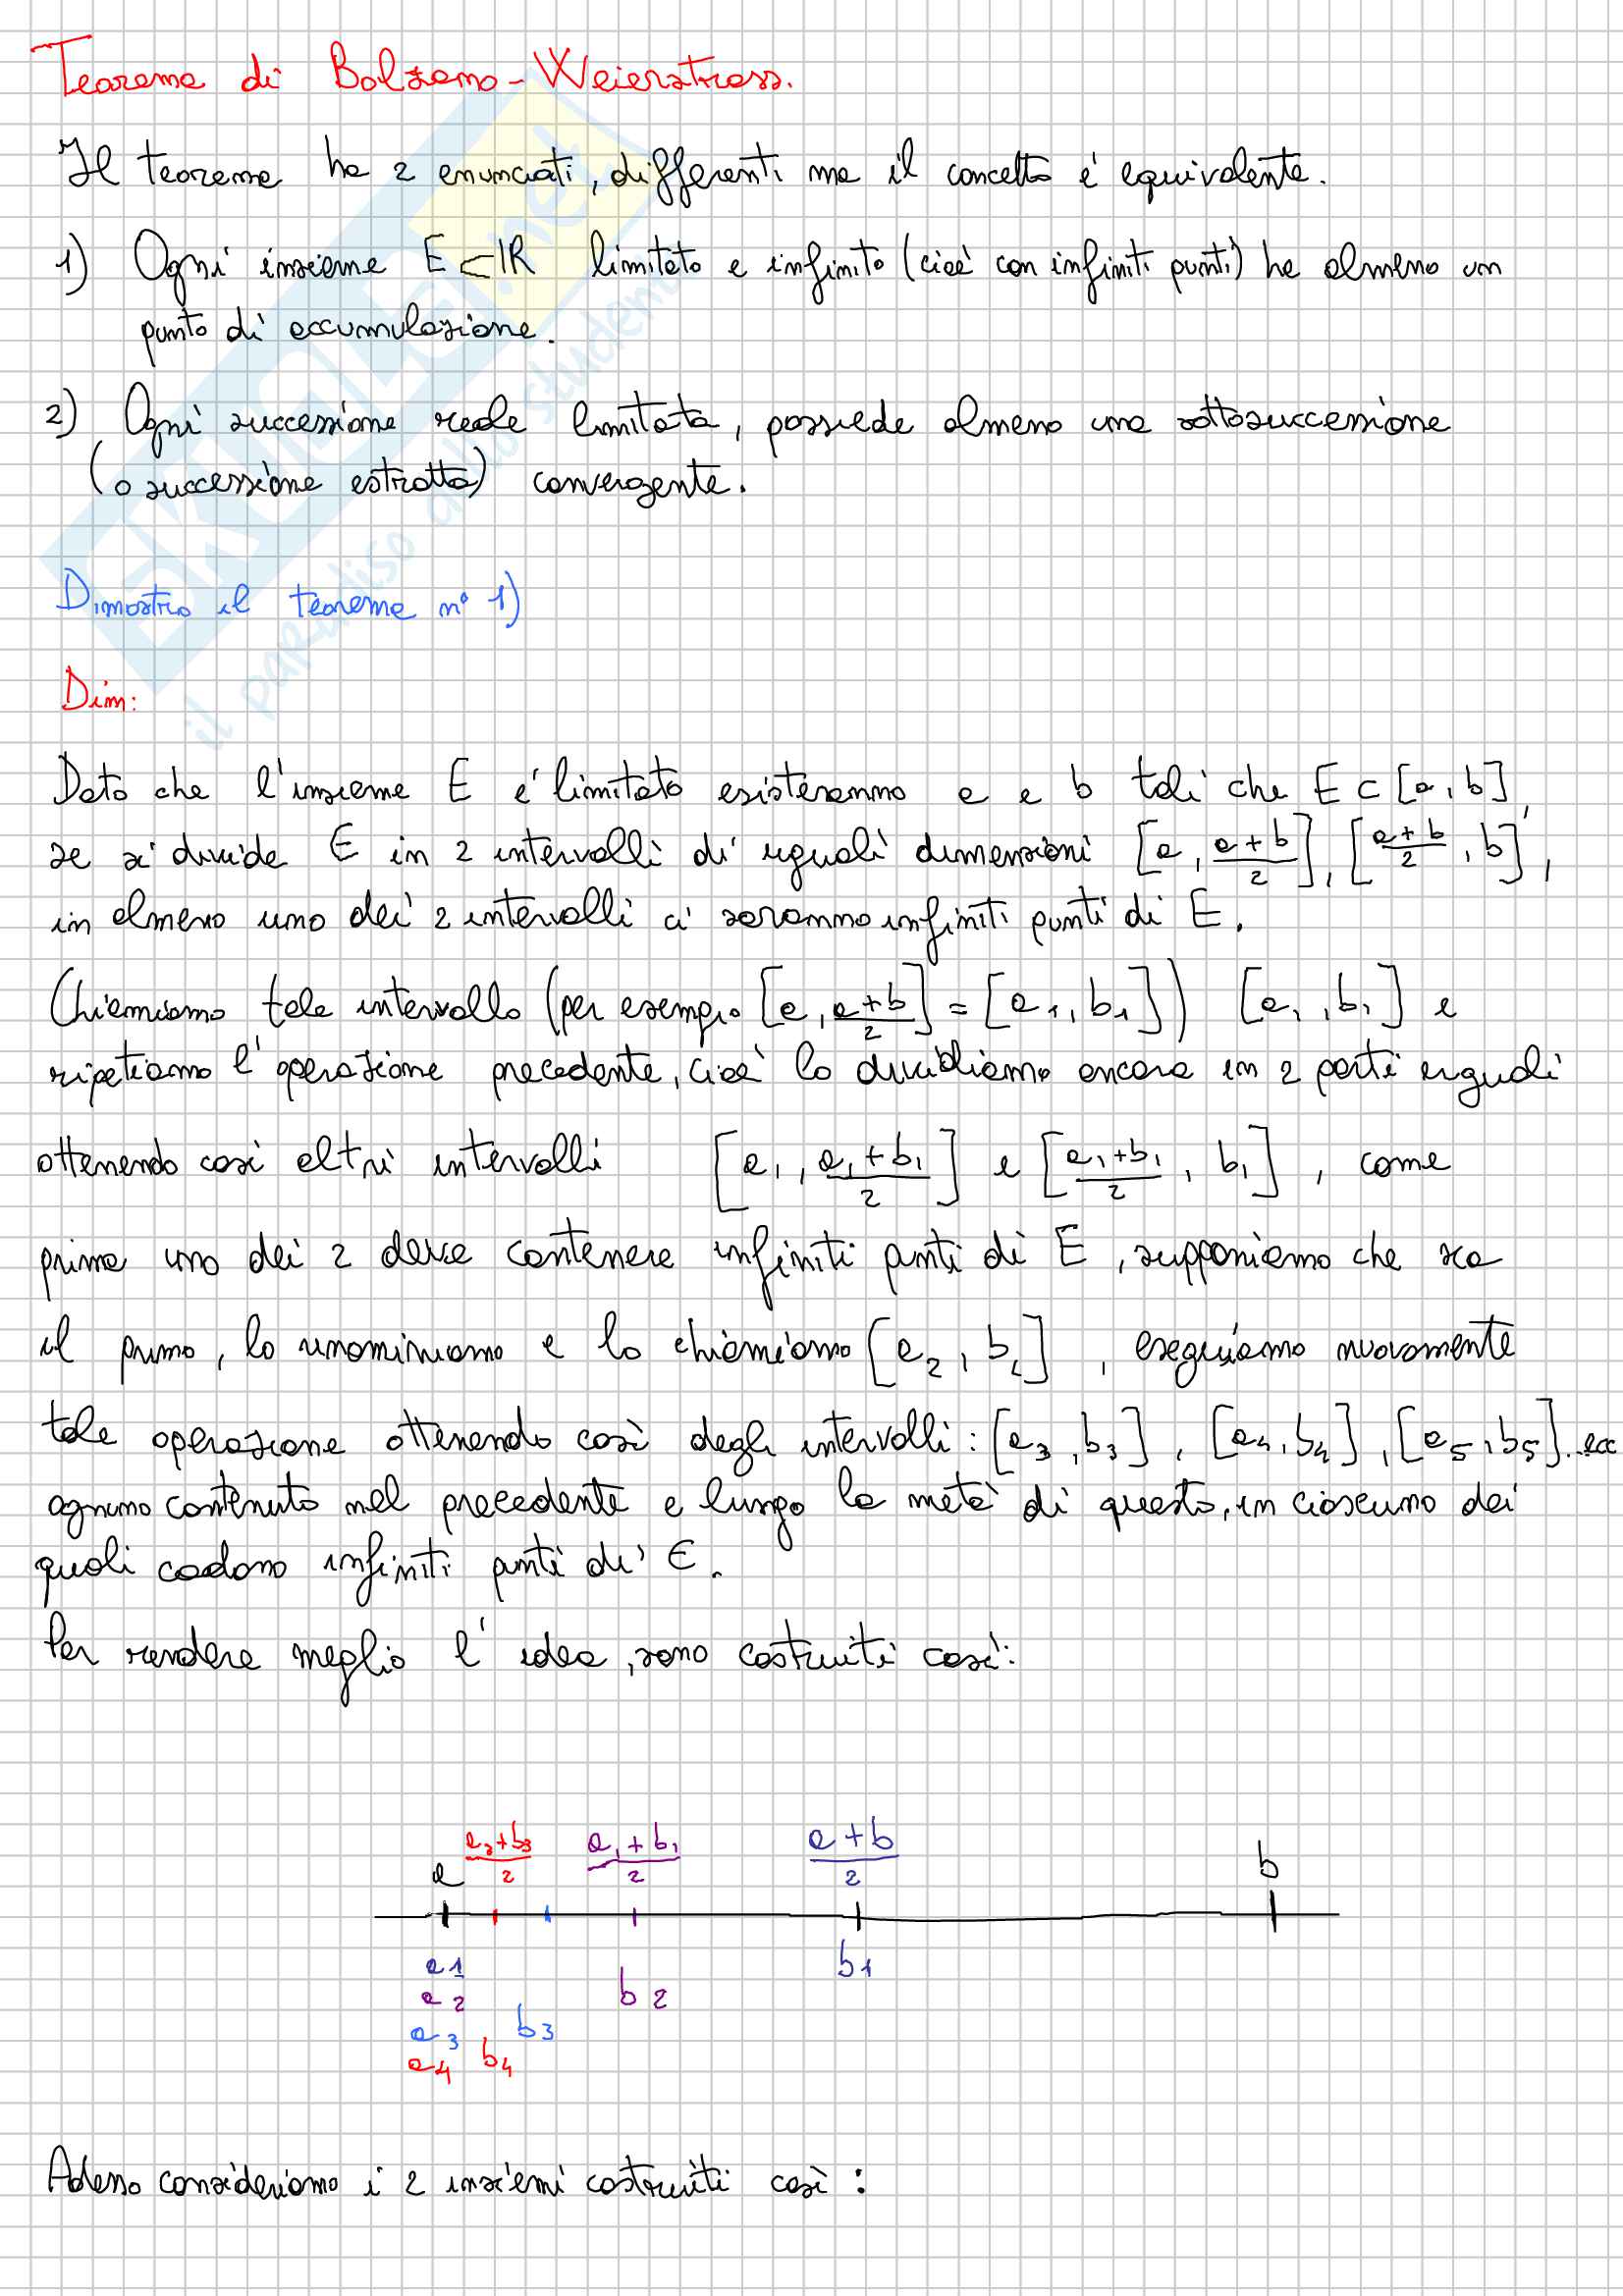 Teorema di Bolzano-Weierstrass.
Il teorema ha 2 enunciati, differenti ma il concetto é equivalente.
1) Ogni insieme E⊂ℝ limitato e infinito (cioè con infiniti punti) ha almeno un
punto di accumulazione.
2) Ogni successione reale limitata, possiede almeno una sottosuccessione
(o successione estratta) convergente.
Dimostro il teorema n° 1)
Dim:
Dato che l'insieme E é limitato esisteranno a e b tali che E⊂[a,b],
se si divide E in 2 intervalli di uguali dimensioni [a, (a+b)/2], [(a+b)/2, b],
in almeno uno dei 2 intervalli ci saranno infiniti punti di E.
Chiamiamo tale intervallo (per esempio [a, (a+b)/2] = [a1, b1]) [a1, b1] e
ripetiamo l'operazione precedente, cioè lo dividiamo ancora in 2 parti uguali
ottenendo così altri intervalli [a1, (a1+b1)/2] e [(a1+b1)/2, b1], come
prima uno dei 2 deve contenere infiniti punti di E, supponiamo che sia
il primo, lo rinominiamo e lo chiamiamo [a2, b2], eseguiamo nuovamente
tale operazione ottenendo così degli intervalli: [a3, b3], [a4, b4], [a5, b5]...ecc
ognuno contenuto nel precedente e lungo la metà di questo, in ciascuno dei
quali cadono infiniti punti di E.
Per rendere meglio l'idea, sono costruiti così:
a (a3+b3)/2 (a1+b1)/2 (a+b)/2 b
a1 b1
a2 b2
a3 b3
a4 b4
Adesso consideriamo i 2 insiemi costruiti così:
SKUOLA.net
il paradiso dello studente